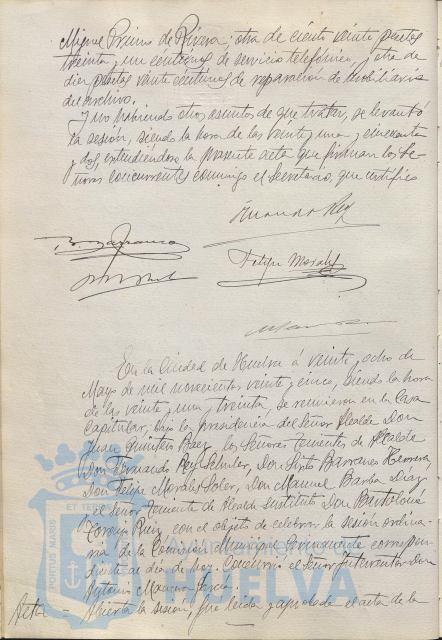 Miguel Primo de Rivera; otra de ciento veinte pesetas
treinta y un centimos de servicio telefónico y otra de
diez pesetas veinte centimos de reparacion de mobiliario
del archivo.
Y no habiendo otros asuntos de que tratar, se levantó
la sesión, siendo la hora de las veinte y una y cincuenta
y dos, extendiéndose la presente acta que firman los Se-
ñores concurrentes conmigo el Secretario, que certifico
Fernando Rey
B. Barranco
Felipe Morales
En la Ciudad de Huelva á veinte y ocho de
Mayo de mil novecientos veinte y cinco, siendo la hora
de las veinte y una y treinta, se reunieron en la Casa
capitular, bajo la presidencia del Señor Alcalde Don
Juan Quintero Baez los Señores tenientes de Alcalde
Don Fernando Rey Don Sixto Barranco Herrera,
Don Felipe Morales Soler, Don Manuel Barba Diaz
y el Señor Teniente de Alcalde sustituto Don Bartolomé
Ruiz, con el objeto de celebrar la sesión ordina-
ria de la Comision Municipal Permanente correspon-
diente al dia de hoy. Concurrió el Señor Interventor Don
Antonio García.
Acta - Abierta la sesión, fue leida y aprobada el acta de la
PORTUS MARIS
ET TERRAE
Ayuntamiento de
HUELVA